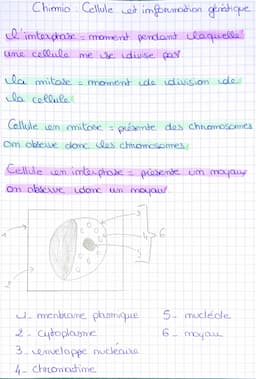 Chimie : Cellule et information génétique
L'interphase = moment pendant laquelle
une cellule me se divise pas
La mitose = moment de division de
la cellule
Cellule en mitose = présente des chromosomes
on observe donc des chromosomes
Cellule en interphase = présente un moyau
on observe donc un moyau
1
2
3
5
4
6
1 - menbrane plasmique
2 - Cytoplasme
3 - enveloppe nucléaire
4 - Chromatine
5 - nucléole
6 - moyau